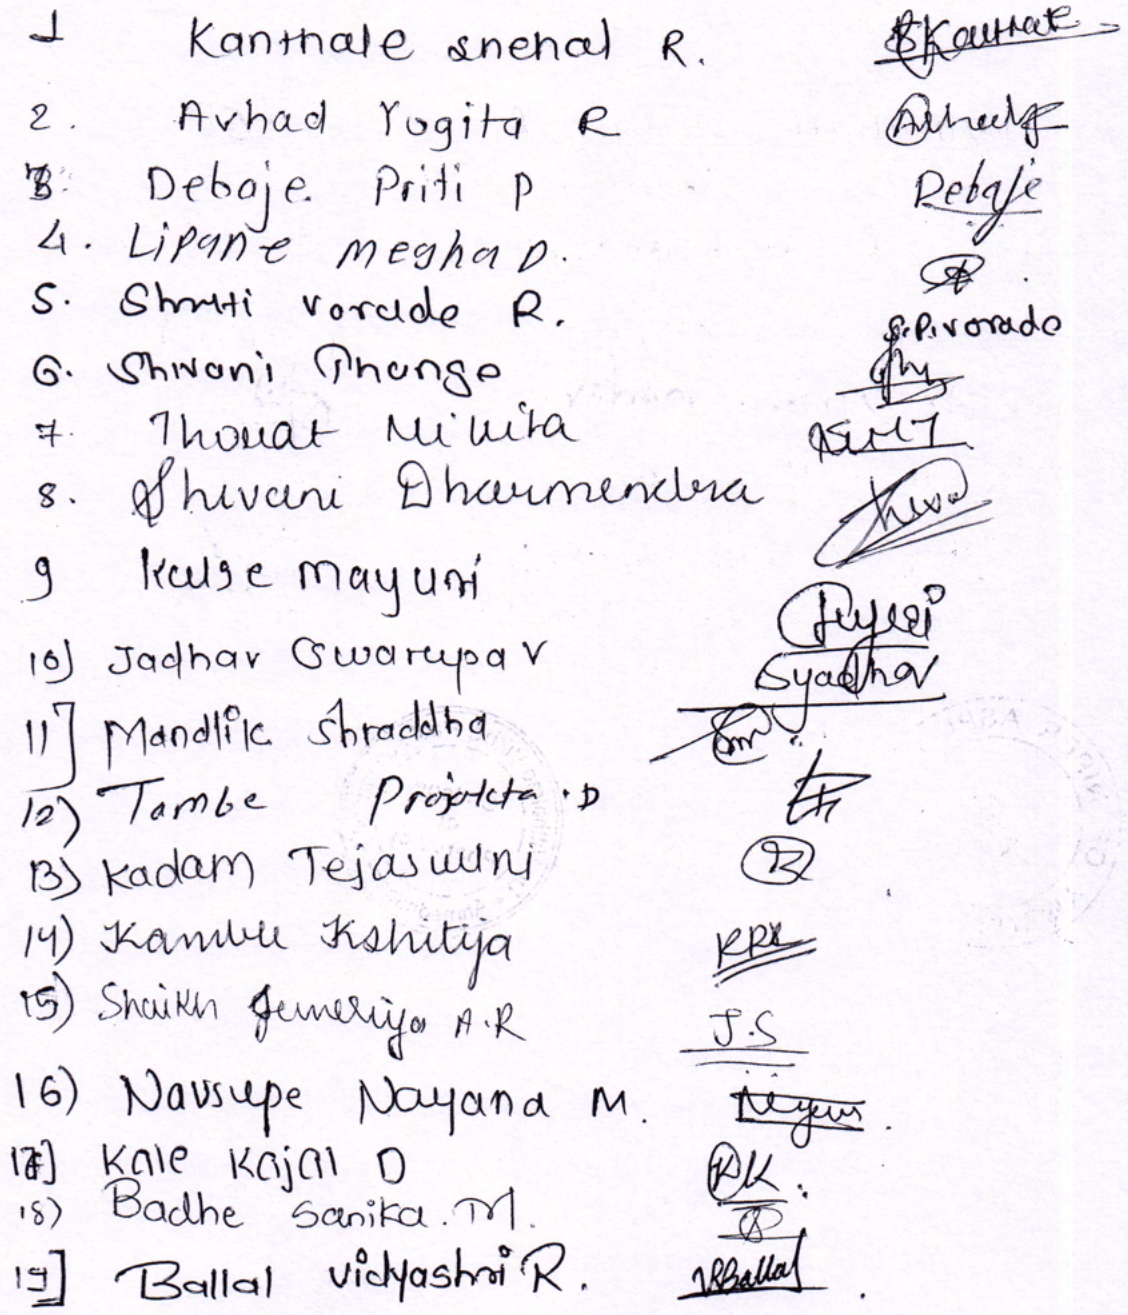 1 Kanthale snehal R. SKanthale
2. Avhad Yogita R Avhad
3. Debaje. Priti P Debaje
4. Lipane megha D.
5. Shruti vorade R. S.P.vorade
6. Shivani Thange
7. Thorat Nikita
8. Shivani Dharmendra Shiva
9 kalse mayuri
10) Jadhav Swarupa V SJadhav
11] Mandlik Shraddha Sm
12) Tambe Prajakta .D
13) Kadam Tejaswini
14) Kamble Kshitija
15) Shaikh Jumeriya A.R J.S
16) Navsupe Nayana M.
17] Kale Kajal D KK.
18) Badhe Sanika. M.
19] Ballal vidyashri R. VRBallal